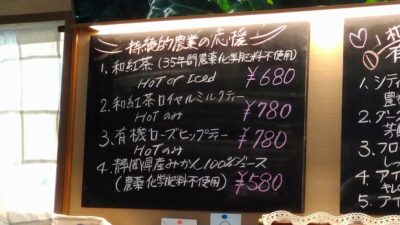 持続的農業の応援
1. 和紅茶(35年間農薬化学肥料不使用)
HOT or Iced ¥680
2. 和紅茶ロイヤルミルクティー
HOT のみ ¥780
3. 有機ローズヒップティー
HOT のみ ¥780
4. 静岡県産みかん100%ジュース
(農薬化学肥料不使用) ¥580
1. シティ
2. ダー
3. フロ
4. アイ
5. アイ